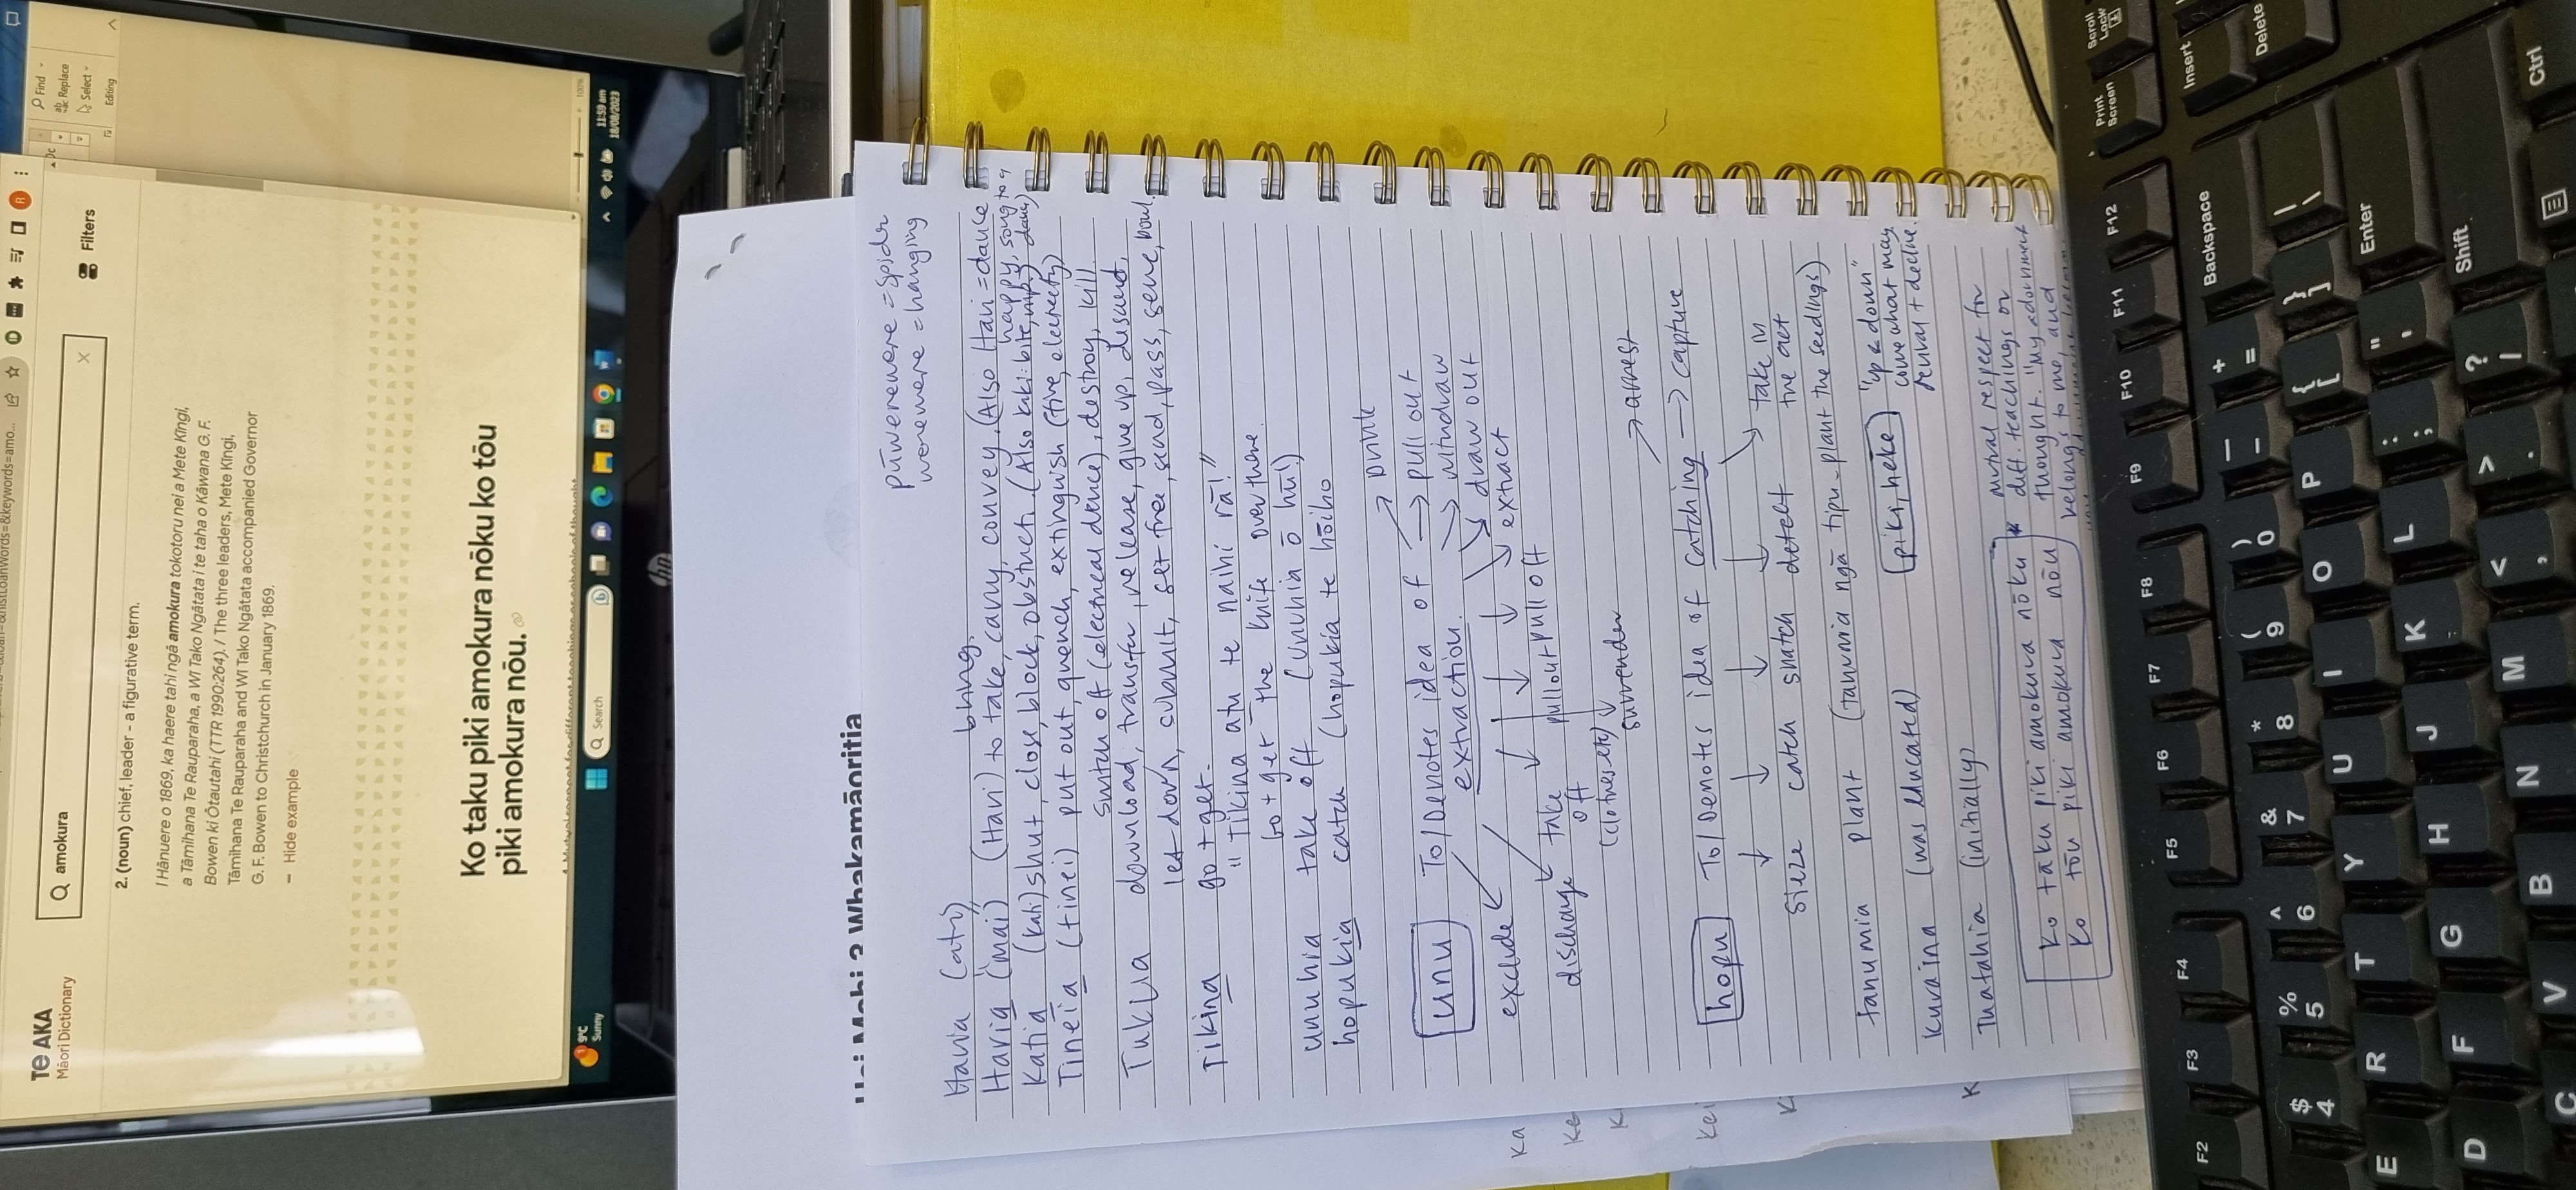 TE AKA
Māori Dictionary
amokura
Filters
2. (noun) chief, leader - a figurative term.
I Hānuere o 1869, ka haere tahi ngā amokura tokotoru nei a Mete Kīngi,
a Tāmihana Te Rauparaha, a Wī Tako Ngātata i te taha o Kāwana G. F.
Bowen ki Ōtautahi (TTR 1990:264). / The three leaders, Mete Kīngi,
Tāmihana Te Rauparaha and Wī Tako Ngātata accompanied Governor
G. F. Bowen to Christchurch in January 1869.
– Hide example
Ko taku piki amokura nōku ko tōu
piki amokura nōu.
1. Mutual respect for different teachings or schools of thought
Find
Replace
Select
Editing
100%
9°C
Sunny
Search
11:59 am
18/08/2023
hp
Hei Mahi 3 Whakamāoritia
pūwerewere = spider
werewere = hanging
Haria (atu)
bring.
Haria ("mai") (Hari) to take, carry, convey. (Also Hari = dance
happy, song to a
Katia (kati) shut, close, block, obstruct. (Also kaki: bite, nip.) dance)
Tineia (tinei) put out, quench, extinguish (fire, electricity)
switch off (electrical device), destroy, kill
Tukua download, transfer, release, give up, descend,
let down, submit, set free, send, pass, serve, bowl.
Tikina go + get.
"Tikina atu te naihi rā!"
Go + get the knife over there.
unuhia take off (Unuhia ō hū!)
hopukia catch (hopukia te hōiho
unu To/Denotes idea of → Drink
extraction. → pull out
→ withdraw
→ draw out
exclude extract
discharge take pull out pull off
off
(clothes etc)
surrender
→ arrest
hopu To/Denotes idea of catching → capture
sieze catch snatch detect take in
the act
tanumia plant (tanumia ngā tipu - plant the seedlings)
piki, heke "up & down"
come what may
revival + decline.
Kuraina (was educated)
Tuatahia (initially)
Ko tāku piki amokura nōku *
Ko tōu piki amokura nōu
mutual respect for
diff. teachings or
thought. "My adornment
belongs to me, and
Ka
Ke
K
Kei
K
K
F2
F3
F4
F5
F6
F7
F8
F9
F10
F11
F12
Print Screen
Scroll Lock
$ 4
% 5
^ 6
& 7
* 8
( 9
) 0
_ -
+ =
Backspace
Insert
Delete
E
R
T
Y
U
I
O
P
{ [
} ]
| \
D
F
G
H
J
K
L
: ;
" '
Enter
C
V
B
N
M
< ,
> .
? /
Shift
Ctrl